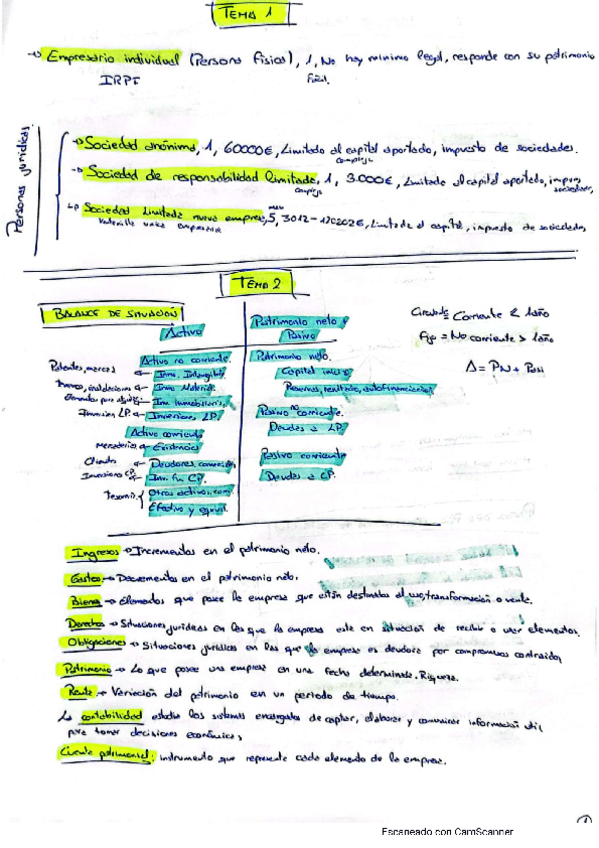 TEMA 1
→ Empresario individual (Persona física), 1, No hay mínimo legal, responde con su patrimonio
IRPF
Personas jurídicas
→ Sociedad anónima, 1, 60000€, Limitado al capital aportado, impuesto de sociedades.
→ Sociedad de responsabilidad limitada, 1, 3.000€, Limitado al capital aportado, impues sociedades
→ Sociedad Limitada nueva empresa, 5, 3012-120202€, Limitada al capital, impuesto de sociedades
TEMA 2
BALANCE DE SITUACIÓN
Activo
Patrimonio neto y
Pasivo
Circulante = Corriente < 1 año
Fijo = No corriente > 1 año
A = PN + Pasi
Activo no corriente
Patentes, marcas ← Inm. Intangible
Inm. Material
Inm Inmobiliarias
Inversión LP. ← Inversiones LP.
Activo corriente
Mercaderías ← Existencias
Clientes ← Deudores comerciales
Inversiones CP. ← Inv. fin CP.
Tesorería { Otros activos, com
Efectivo y equival.
Patrimonio neto.
Capital
Reservas, resultado, autofinanciación
Pasivo no corriente.
Deudas a LP.
Pasivo corriente
Deudas a CP.
Ingresos → Incrementos en el patrimonio neto.
Gastos → Decrementos en el patrimonio neto.
Bienes → Elementos que posee la empresa que están destinados al uso, transformación o venta.
Derechos → Situaciones jurídicas en las que la empresa está en situación de recibir o usar elementos.
Obligaciones → Situaciones jurídicas en las que la empresa es deudora por compromisos contraídos
Patrimonio → Lo que posee una empresa en una fecha determinada. Riqueza.
Renta → Variación del patrimonio en un periodo de tiempo.
La contabilidad estudia los sistemas encargados de captar, elaborar y comunicar información útil
para tomar decisiones económicas
Cuenta patrimonial: instrumento que representa cada elemento de la empresa.
1
Escaneado con CamScanner